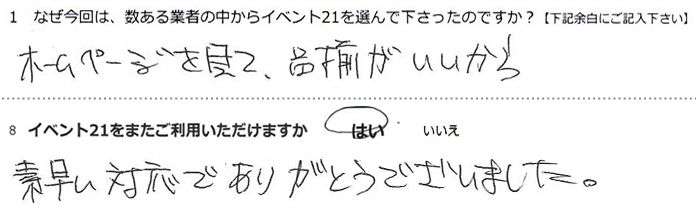 1 なぜ今回は、数ある業者の中からイベント21を選んで下さったのですか？【下記余白にご記入下さい】
ホームページを見て、品揃がいいから
8 イベント21をまたご利用いただけますか はい いいえ
素早い対応でありがとうございました。